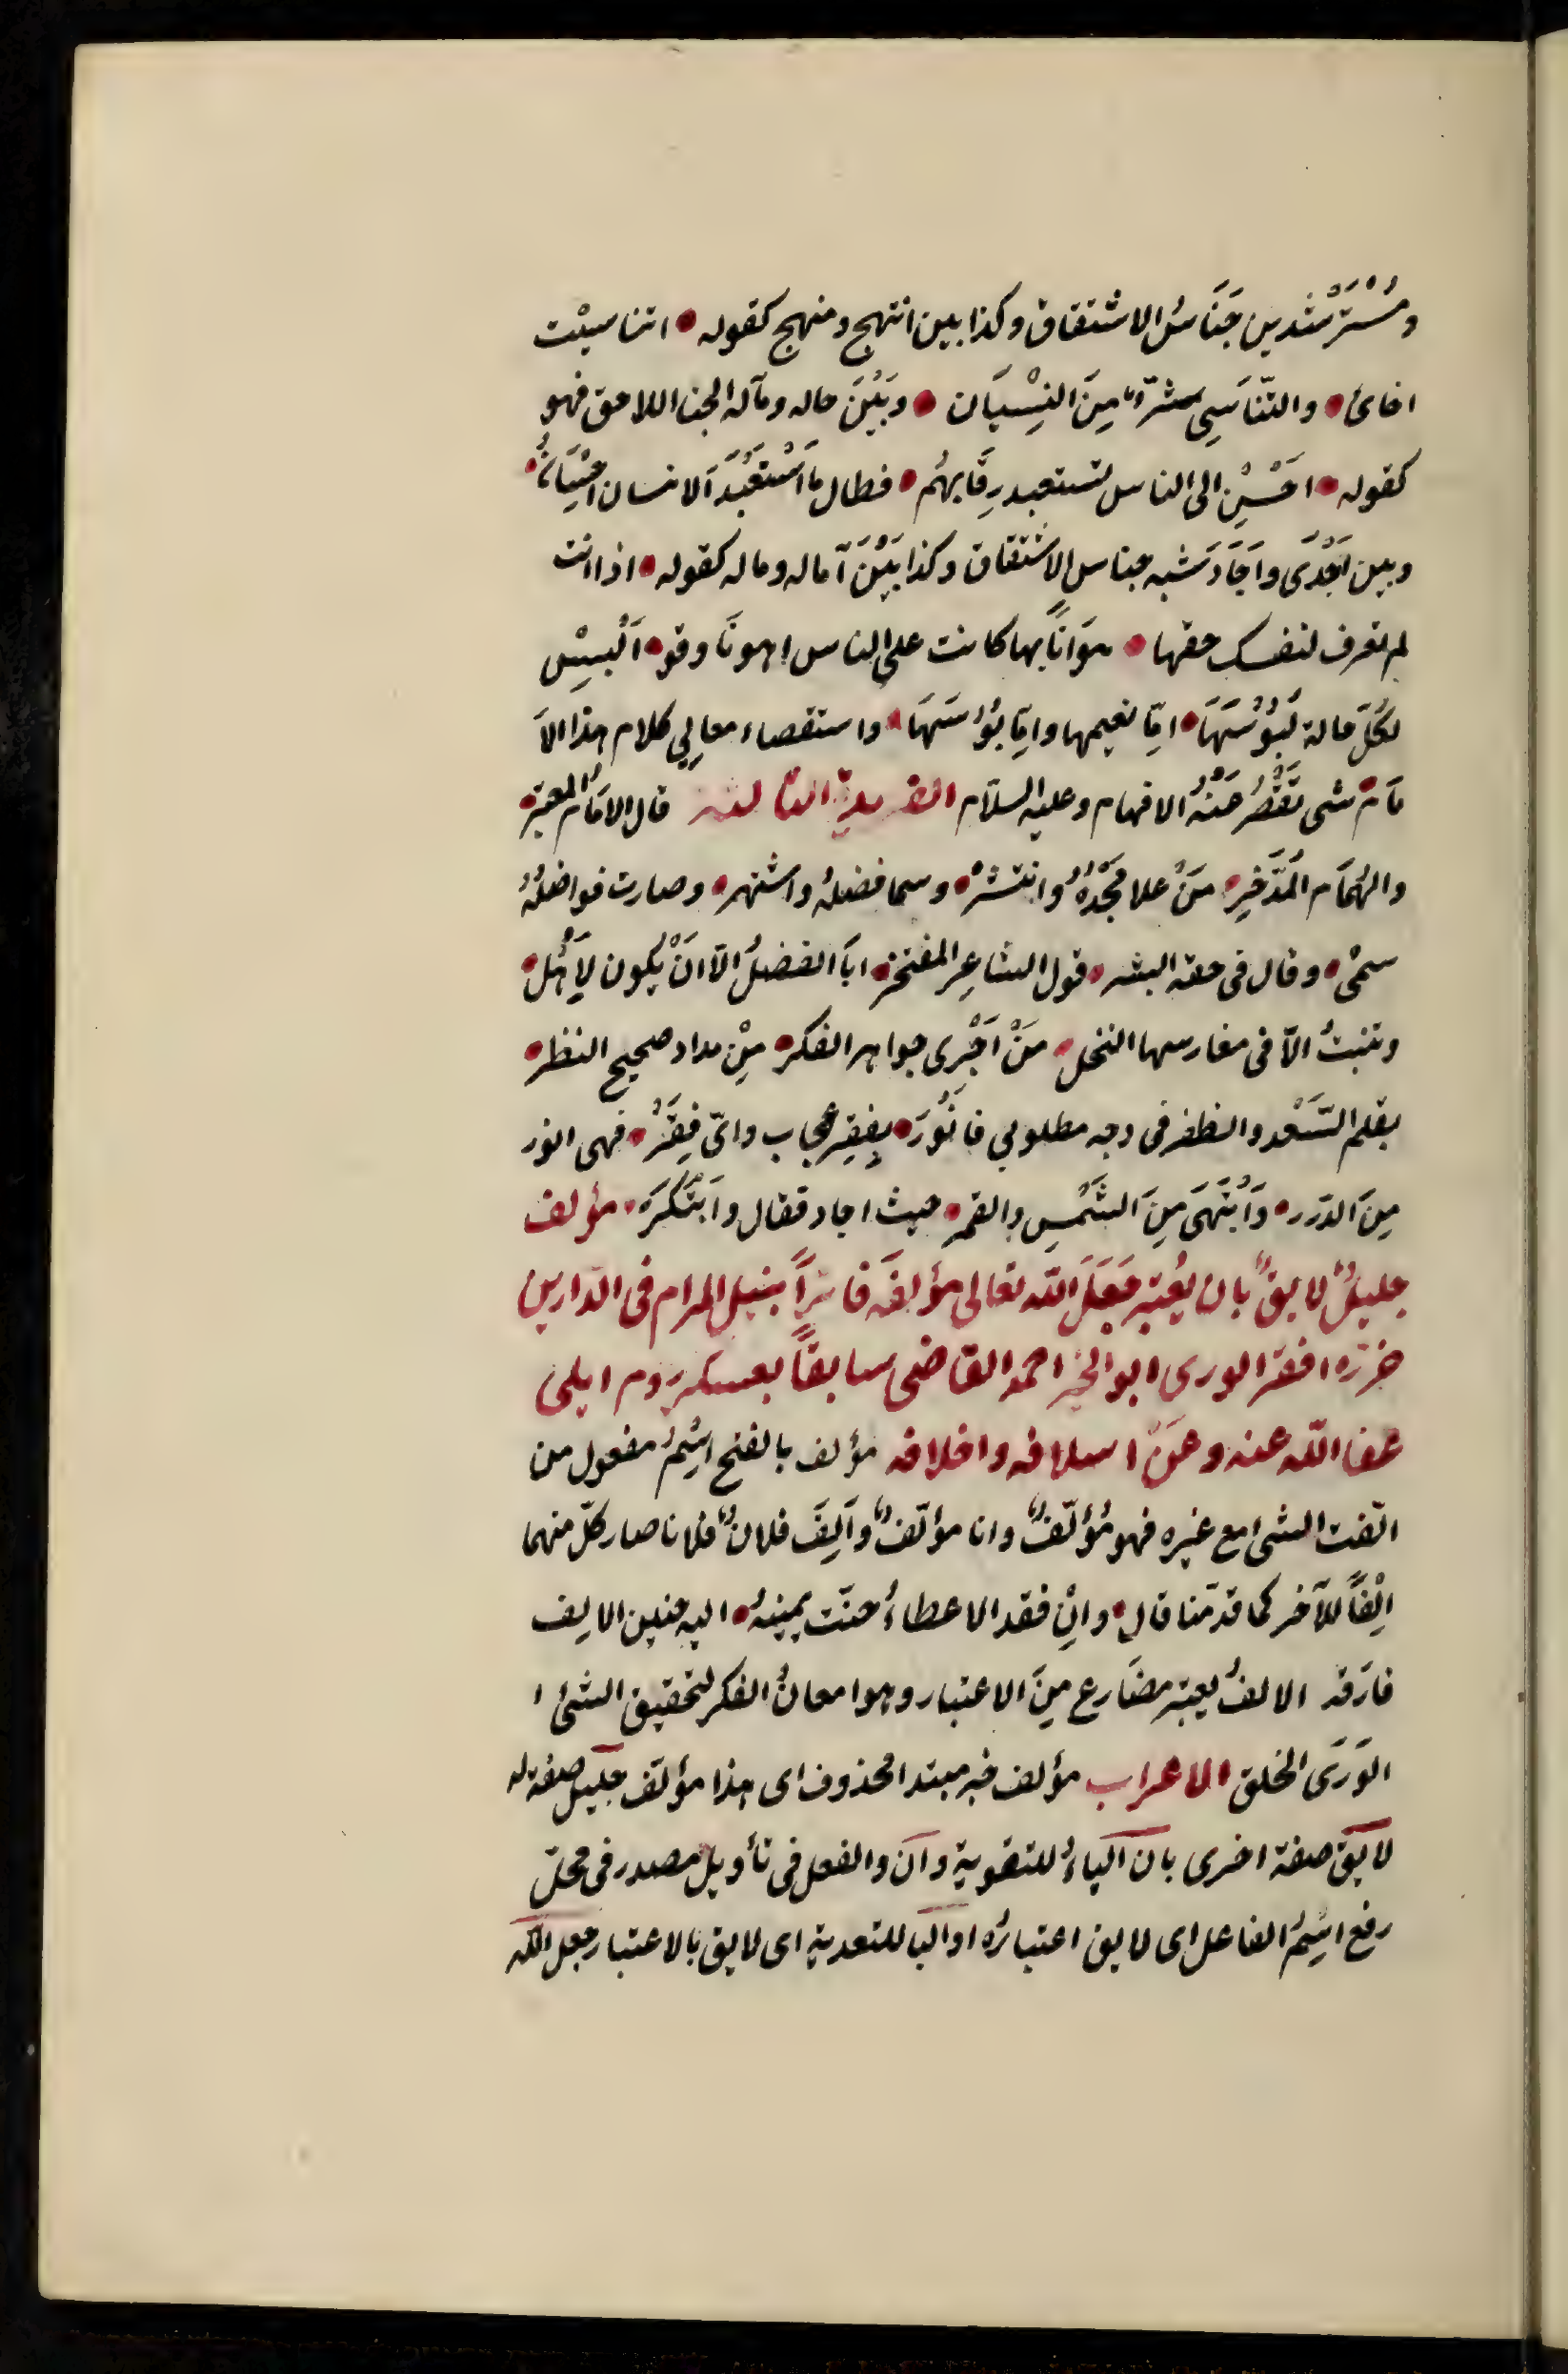 ومُسْتَرْشدين جَنَاسُ الاشتقاق وكذا بين انتهج ومنهج كقوله • اتناسيْت
اخائ • والتّنَاسِى شرٌّ مِنَ النِسْيَان • وبَيْنَ حاله ومآله الجناس اللاحق فهو
كقوله • احْسِنْ الى الناس تستعبد رِقَابهُم • فطال ما اسْتَعْبَدَ الانسان احْسَانُ •
وبين اَجْدَى واَجَادَ شبه جناس الاشتقاق وكذا بَيْنَ آماله وماله كقوله • اذا انت
لم تعرف لنفسك حقها • هوَانًا بها كانت على الناس اهونَا وقو • اَلْبِسْ
لكلّ حالة لَبُوْسَهَا • امّا نعيمها وامّا بُوْسَهَا • واستقصاء معالِى كلام هذا الاَ
مَام شى تَقْصُرُ عَنْهُ الافهام وعليه السلام الفريدة الثالثة قال الامَامُ المعتبر •
والهُمَام المُدَّخِر • مَنْ علا مَجْدُهُ وانتشرْ • وسما فضلهُ واشتهر • وصارت فواضلُهُ
سمرْ • وقال فى حقه البشر • قول الشاعِر المفتخر • ابَا الفضلُ الاّ انْ يكون لاَِهْل •
وتنبتُ الاّ فى مغارسها النخل • مَنْ اَجْرى جواهر الفكر • مِنْ مداد صحيح النظر •
بقلم السَّعْد والظفر فى وجه مطلوبى فانوُرَ • بفِقَر عجاب واىّ فِقَرْ • فهى انور
مِنَ الدّرر • وَاَبْهَى مِنَ الشَّمْسِ والقمر • حيث اجاد فقال وَابْتَكَرَ • مؤلف
جليلٌ لايقٌ بان يُعْتبر جَعَلَ الله تعالى مؤلفَه فائزاً بنيل المرام فى الدّارين
حرّره افقر الورى ابو الخير احمد القاضى سابقاً بعسكر روم ايلى
عفا الله عنه وعن اسلافه واخلافه مؤلف بالفتح اسْمُ مفعول من
الّفت الشئ مع غيره فهو مُؤلّفٌ وانا مؤلّفٌ وآلِفَ فلانٌ فلانا صار كلّ منهما
اِلْفًا للآخر كما قدّمنا قال • وانْ فقد الاعطاءُ حنّت يمينهُ • اليه حنين الالِيف
فارَقه الالفُ يعتبر مضَارع مِنَ الاعتبار وهو امعانُ الفكر لتحقيق الشئ ا
الوَرَى الخلق الاعراب مؤلف خبر مبتدا محذوف اى هذا مؤلّف جليل صفة له
لايق صفة اخرى بان الباءُ للتقوية وان والفعل فى تأويل مصدر فى محل
رفع اسْمُ الفاعل اى لايق اعتبارُه او البا للتعدية اى لايق بالاعتبار جعل الله